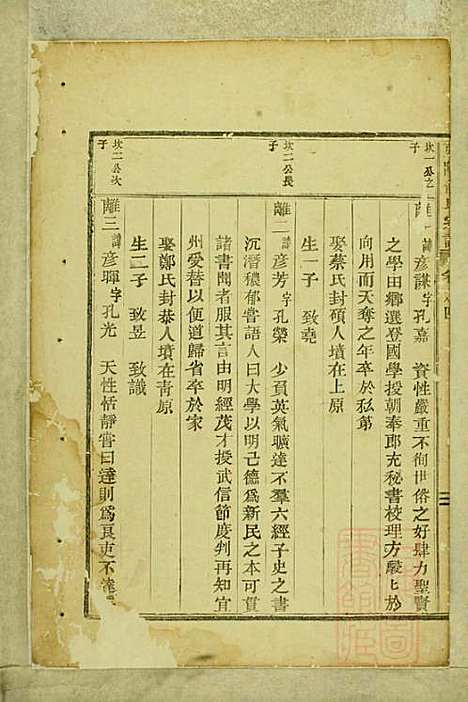 坎一公之子
離一 諱彥謀字孔嘉 資性嚴重不徇世俗之好肆力聖賢
之學田鄉選登國學授朝奉郎充秘書校理方駸匕於
向用而天奪之年卒於私第
娶蔡氏封碩人墳在上原
生一子 致堯
坎二公長子
離二 諱彥芳字孔榮 少負英氣曠達不羣六經子史之書
沉潛穠郁嘗語人曰大學以明己德爲新民之本可貫
諸書聞者服其言由明經茂才授武信節度判再知宜
州受替以便道歸省卒於家
娶鄭氏封恭人墳在靑原
生二子 致昱 致識
坎二公次子
離三 諱彥暉字孔光 天性恬靜嘗曰達則爲良吏不達